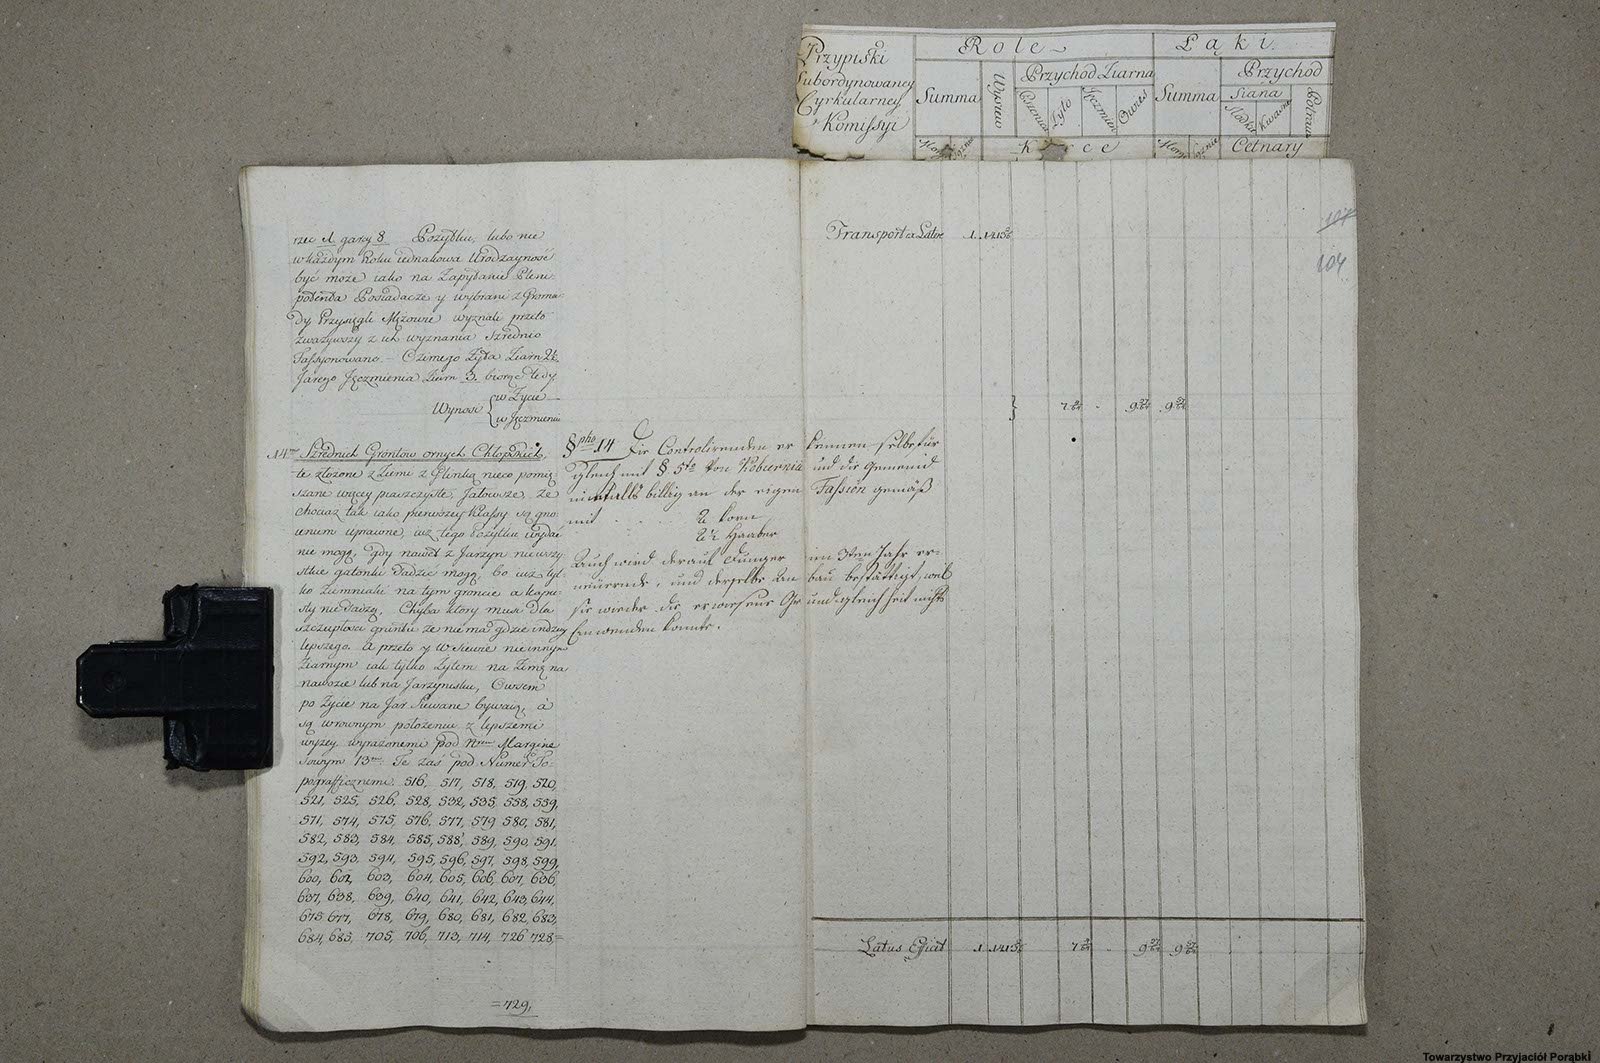 Przypiski
Subordynowaney
Cyrkularney
Komissyi
Role
Łąki
Summa
Wysiew
Przychod Ziarna
Pszenica
Żyto
Jęczmien
Owies
Summa
Przychod
Siana
Słodkie
Kwasne
Potraw
Korce
Cetnary
rzec 1 garcy 8 Pożytku, lubo nie
w każdym Roku iednakowa Urodzayność
być może iako na Zapytanie Pleni-
potenta Posiadacze y wybrani z Groma-
dy Przysięgli Mężowie wyznali przeto
zważywszy z ich wyznania Szrednio
Fassyonowano. Ozimego Żyta Ziarn 2½
Jarego Jęczmienia Ziarn 3. biorąc tedy
Wynosi
w Życie
w Jęczmieniu
14 Szrednich Grontow ornych Chłopskich,
te złożone z Ziemi z Glinką nieco pomię-
szane więcey piasczyste, Jałowsze, że
chociaż tak iako pierwszey Klassy są gno-
ienem uprawne, iuż tego Pożytku wydać
nie mogą, gdy nawet z Jarzyn niewszy-
stkie gatonki dadzić mogą, bo iuż tyl-
ko Ziemniaki na tym groncie a kapu-
sty nie dadzą, Chyba ktory musi dla
szczupłosci gruntu że nie ma gdzie indzey
lepszego. A przeto y w Siewie nie innym
Ziarnym iak tylko Żytem na Zimę na
nawozie lub na Jarzynisku, Owsem
po Życie na Jar siewane bywaią, a
są w rownym położeniu z lepszemi
wyżey wyrażonemi pod Nrem Margine
sowym 13 Te zaś pod Numer To-
pograficznemi 516, 517, 518, 519, 520,
521, 525, 526, 528, 532, 535, 558, 559,
571, 574, 575, 576, 577, 579 580, 581,
582, 583, 584, 585, 588, 589, 590, 591.
592, 593, 594, 595, 596, 597, 598, 599,
600, 602, 603, 604, 605, 606, 607, 636,
637, 638, 639, 640, 641, 642, 643, 644,
675 677, 678, 679, 680, 681, 682, 683,
684, 685, 705, 706, 713, 714, 726 728,=
=729,
§pho 14 Die Controlirenden erkennen selbe für
gleich mit § 5to von Kobiernice und die Gemeind
billig an der eigen Fassion gemäß
mit . . . 2 Korn
2½ Haaber
Auch wird derauf Dunger im 3ten Jahr er-
neuernde, und derselbe Anbau bestättigt, weil
sie wieder die erwiesene Grundgleichheit nichts
Einwenden konnte.
Transport a Latere 1 1415
104
Latus Efficit 1 1415
Towarzystwo Przyjaciół Porąbki